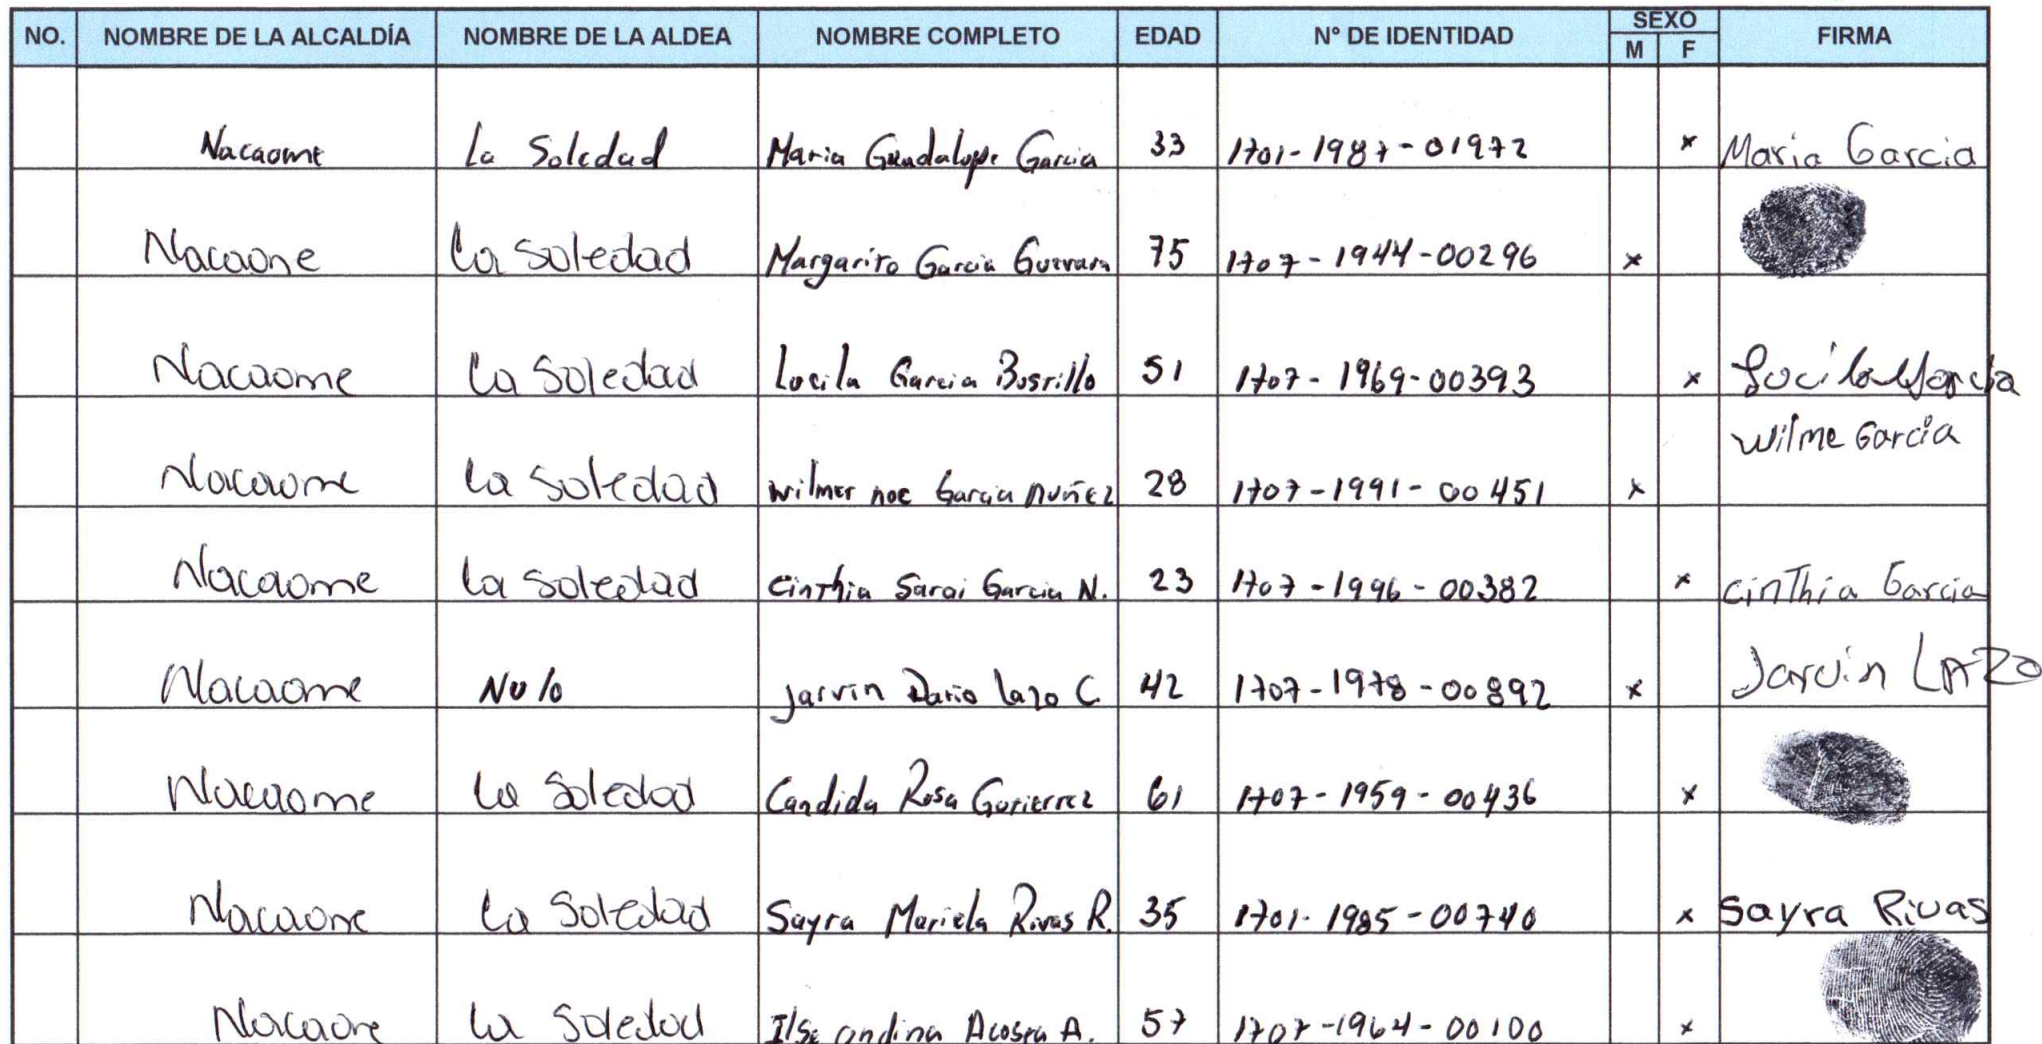 NO. NOMBRE DE LA ALCALDÍA NOMBRE DE LA ALDEA NOMBRE COMPLETO EDAD N° DE IDENTIDAD SEXO M F FIRMA
Nacaome La Soledad Maria Guadalupe Garcia 33 1701-1987-01972 x Maria Garcia
Nacaone La Soledad Margarito Garcia Guevara 75 1707-1944-00296 x
Nacaome La Soledad Lucila Garcia Bustillo 51 1707-1969-00393 x Lucila Garcia
Nacaome La Soledad wilmer noe Garcia nuñez 28 1707-1991-00451 x Wilme Garcia
Nacaome La Soledad Cinthia Sarai Garcia N. 23 1707-1996-00382 x Cinthia Garcia
Nacaome Nulo Jarvin Dario lazo C 42 1707-1978-00892 x Jarvin LAZO
Nacaome La Soledad Candida Rosa Gutierrez 61 1707-1959-00436 x
Nacaome La Soledad Sayra Mariela Rivas R. 35 1701-1985-00740 x Sayra Rivas
Nacaome La Soledad Ilse ondina Acosta A. 57 1707-1964-00100 x